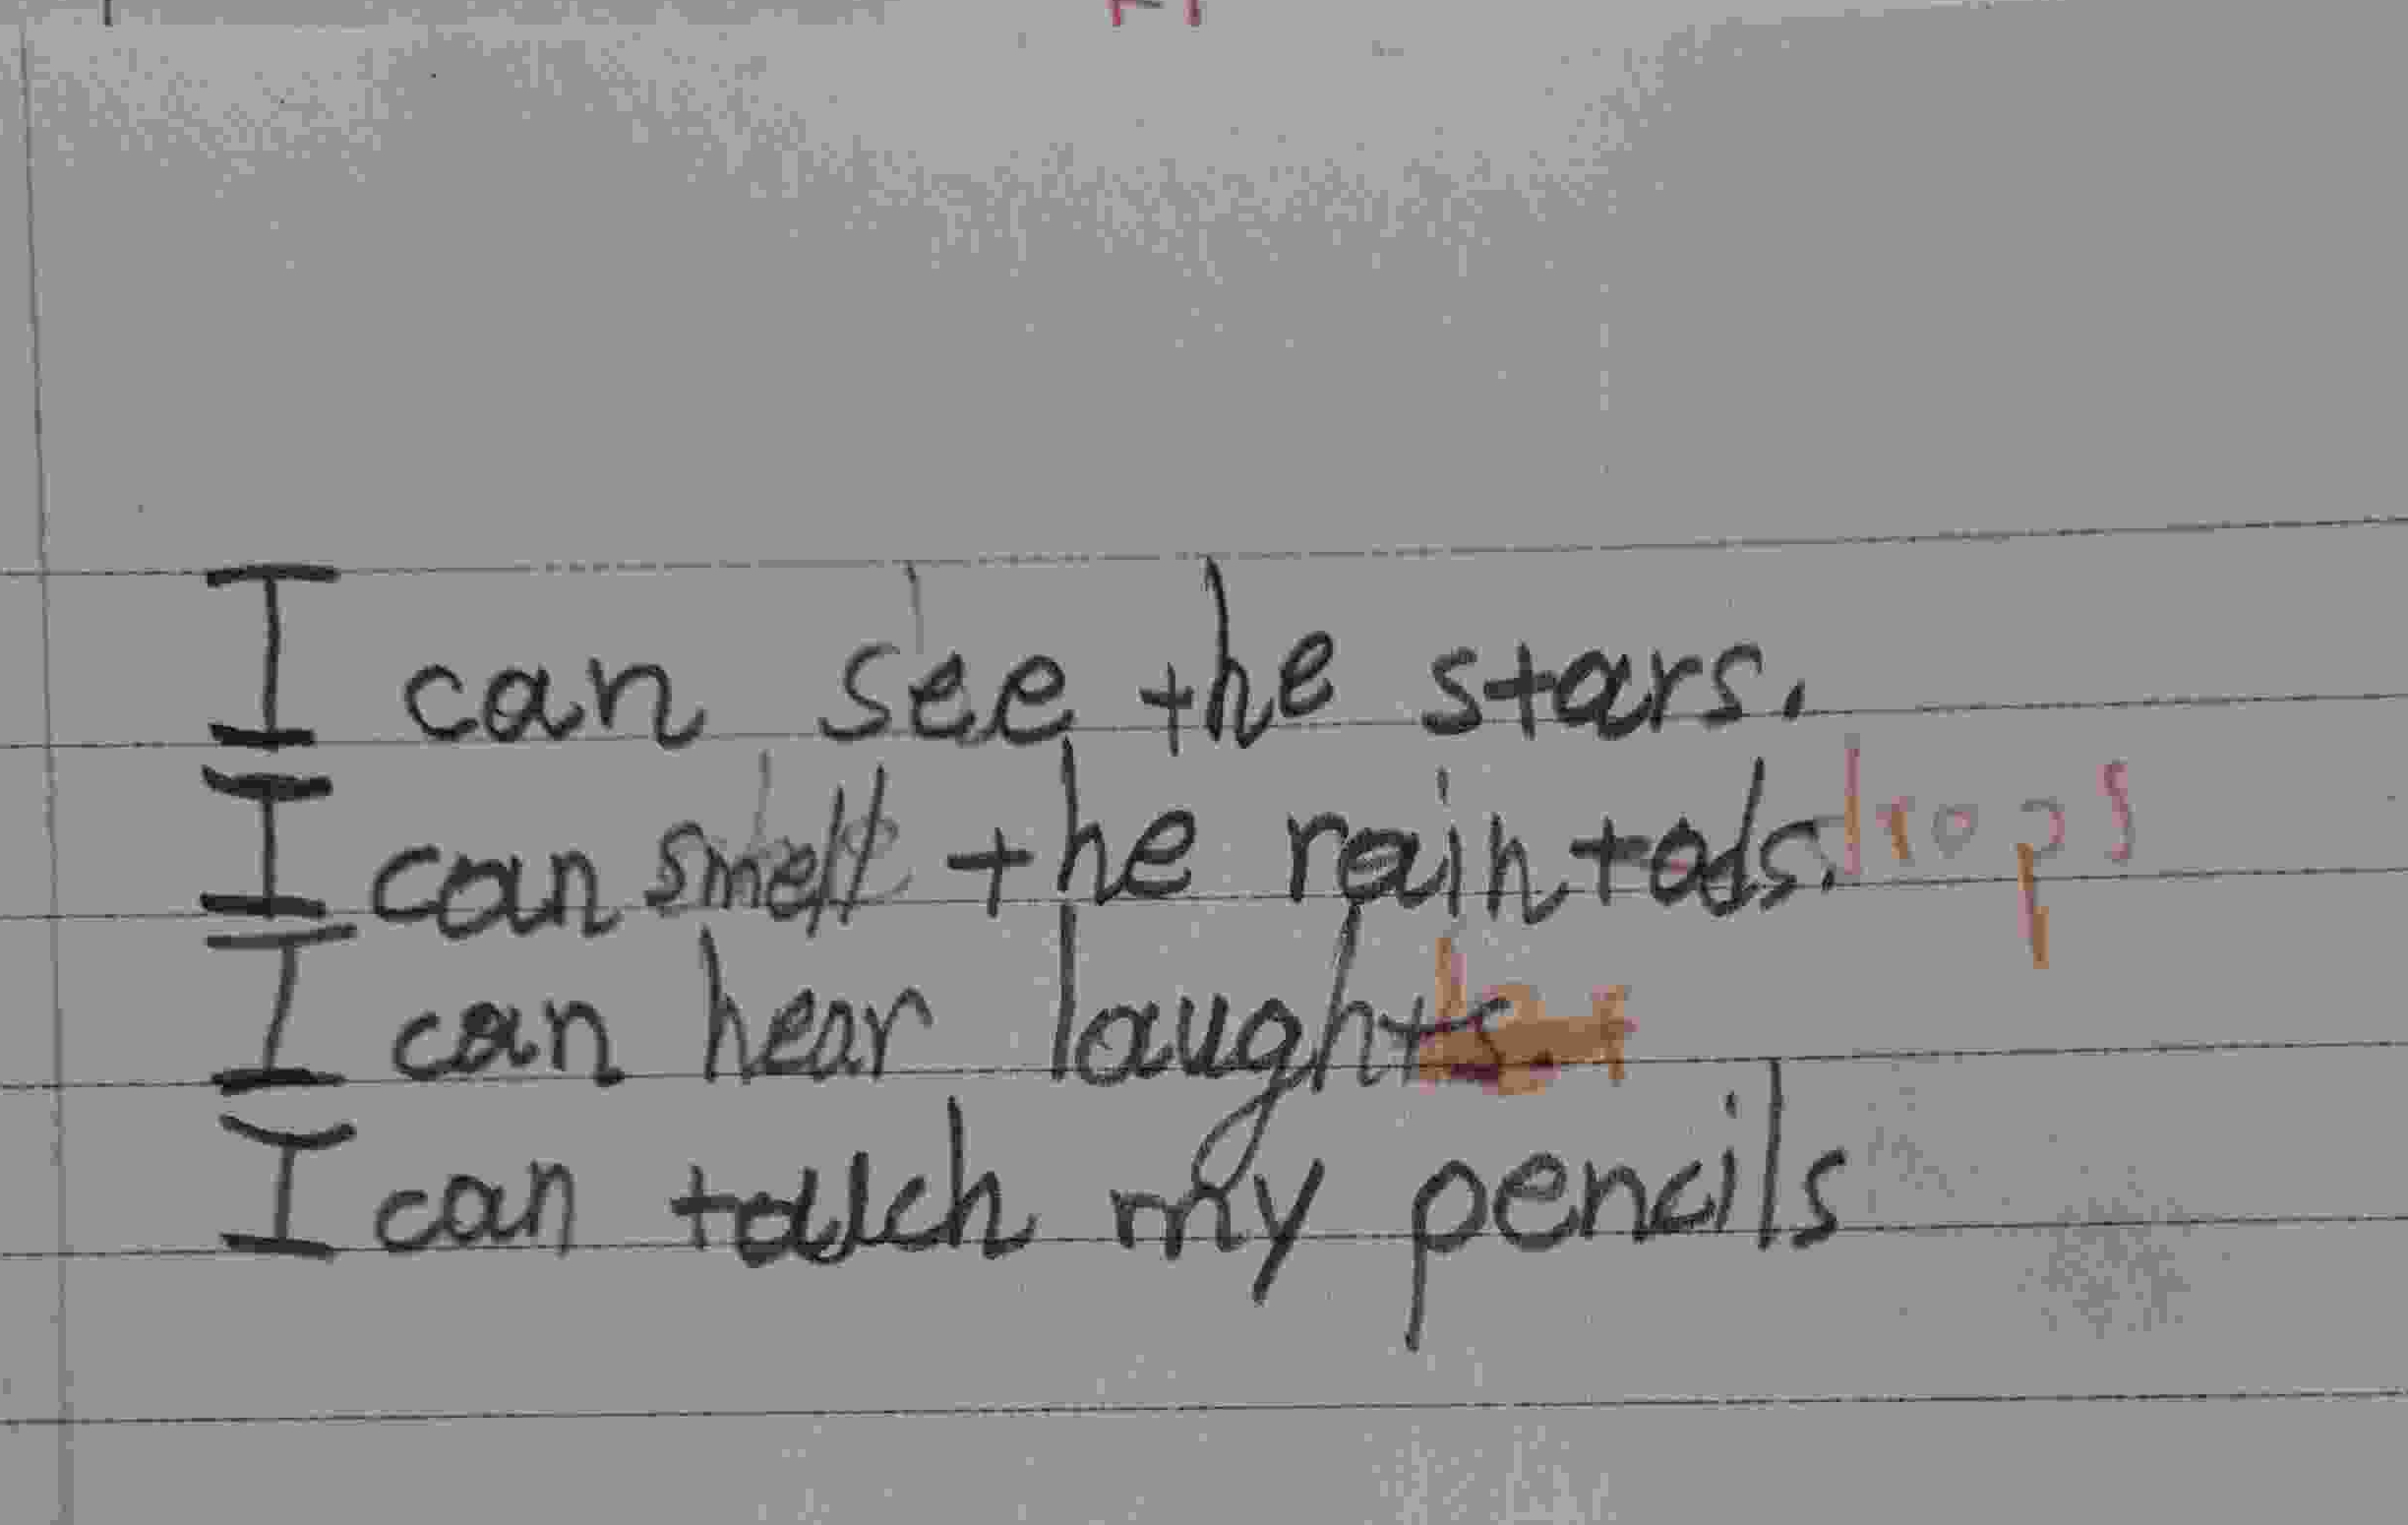 I can see the stars.
I can smell the raintods. drops
I can hear laughter
I can touch my pencils